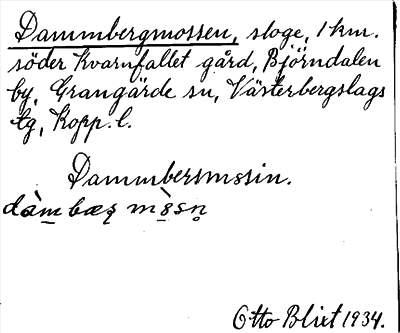 Dammbergmossen, sloge, 1 km.
söder Kvarnfallet gård, Björndalen
by, Grangärde sn, Västerbergslags
tg, Kopp. l.
Dammbersmssin.
Otto Blixt 1934.